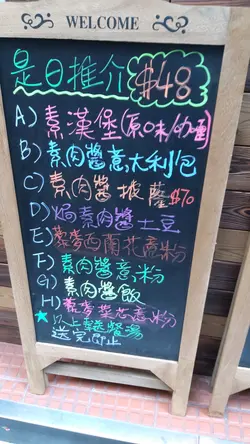 WELCOME
是日推介 $48
A) 素漢堡(原味/咖喱)
B) 素肉醬意大利包
C) 素肉醬披薩$70
D) 焗素肉醬土豆
E) 藜麥西蘭花意粉
F) 素肉醬意粉
G) 素肉醬飯
H) 藜麥菜芯意粉
★以上配餐湯
送完即止